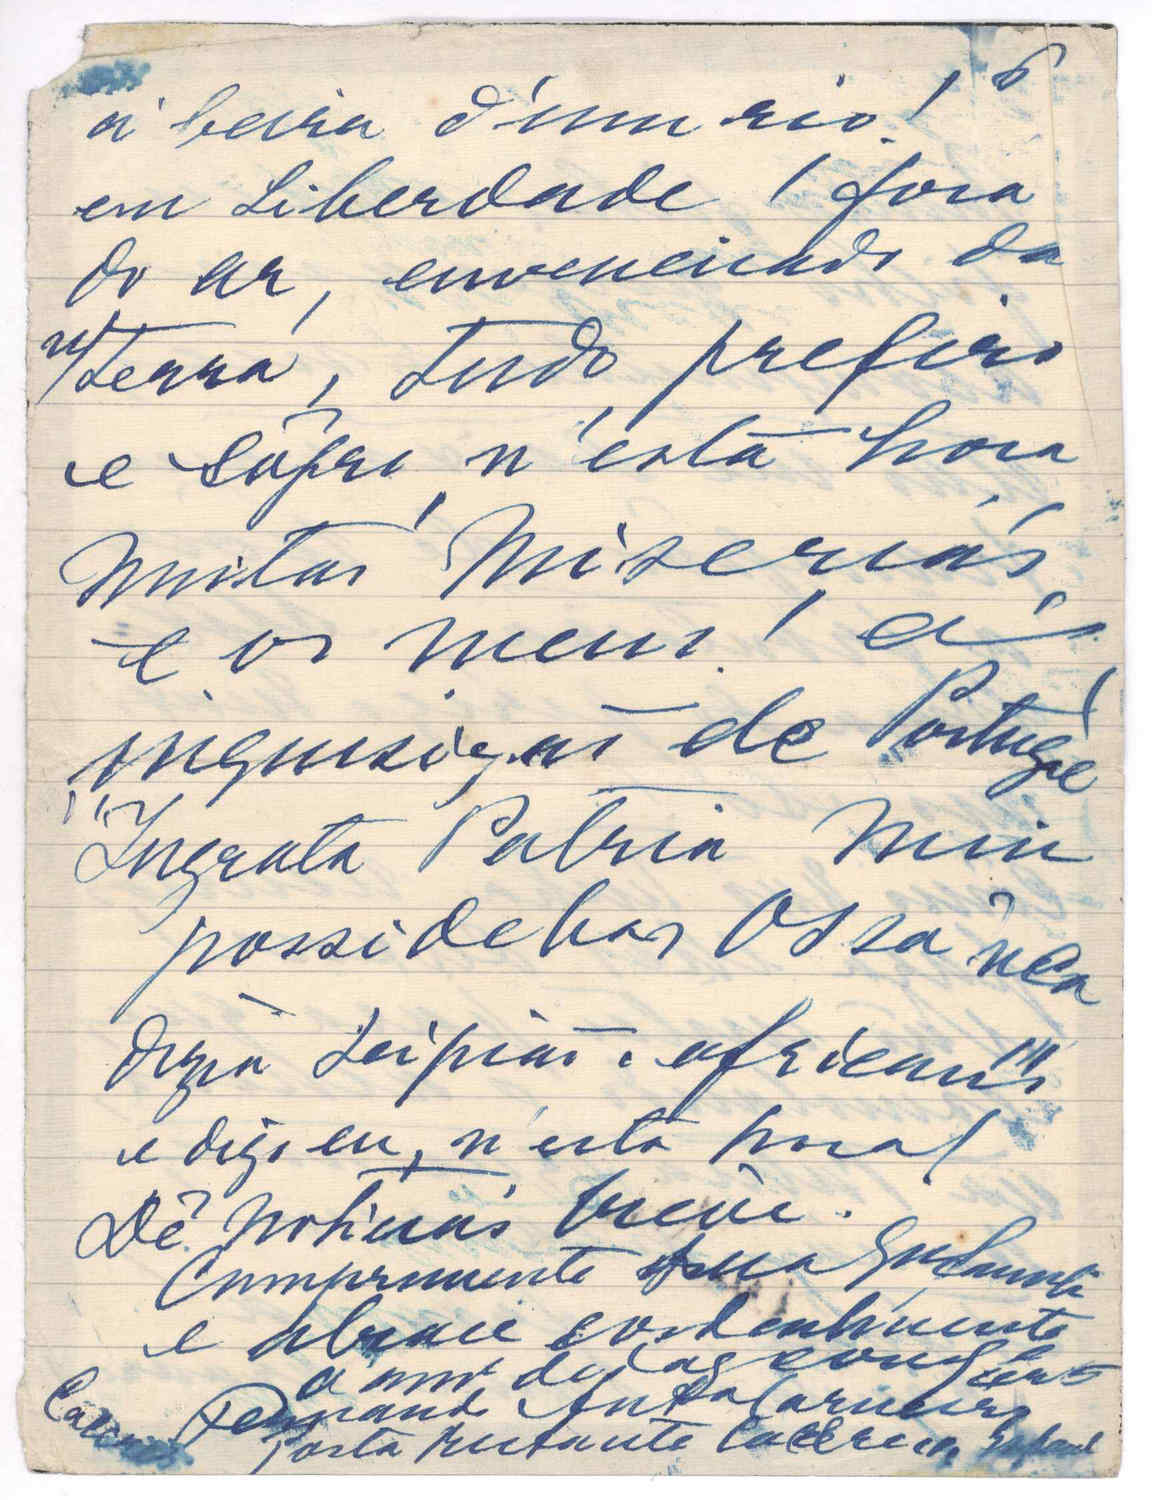 6
á beira d'um rio!
em Liberdade! fora
do ar, envenenado da
n/terra, tudo prefiro
e sôfro n'esta hora
muitas miserias,
e os meus! ás
inquisição de Portugal
"Ingrata Patria
possidebas Ossa mea
dizia Scipião africano"!
e digo eu, n'esta hora!
Dê noticias breve.
Cumprimente sua
e abrace cordealmente
o am.º
Fernando Carneiro
Posta Restante